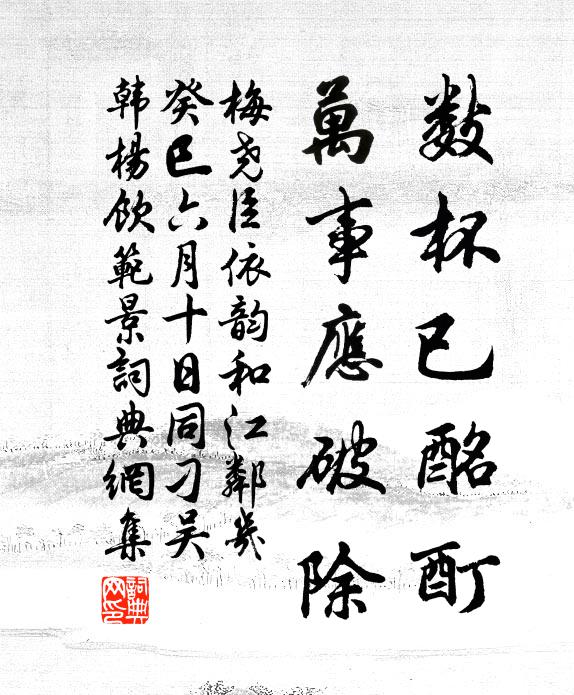 數杯已酩酊
萬事應破除
梅尧臣依韵和江鄰幾
癸巳六月十日同刁吴
韩楊飲範景詞典網集
詞典网印